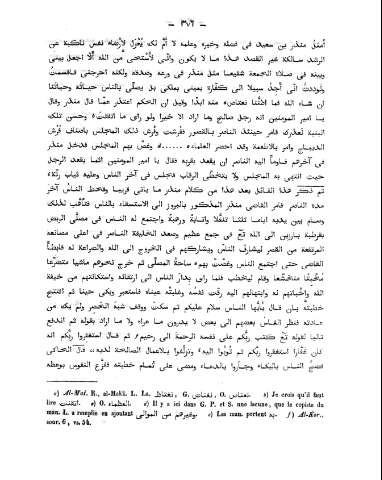 — ٣٧٦ —
أمثل منذر بن سعيد فى فضله وخيره وعلمه لا أمّ لك يُعْزَل لإرضاء نفس ناكبة عن
الرشد سالكة غير القصد هذا ما لا يكون وانّى لأستحيى من الله ألّا أجعل بينى
وبينه فى صلاة الجمعة شفيعا مثل منذر فى ورعه وصدقه ولكنه أحرجنى فأقسمتُ
ولوددتُ انّى أجد سبيلا الى كفّارة يمينى بملكى بل يصلّى بالناس حياته وحياتنا
ان شاء الله فما اظنّنا نعتاض منه ابدا وقيل ان الحكم اعتذر عمّا قال منذر وقال
يا امير المومنين انه رجل صالح وما اراد الا خيرا ولو راى ما انفقتَ وحسن تلك
البنية لعذرك فامر حينئذ الناصر بالقصور ففُرشت وفُرش ذلك المجلس باصناف فُرش
الديباج وامر بالاطعمة وقد احضر العلماء ...... وغصّ بهم المجلس فدخل منذر
فى آخرهم فاوما اليه الناصر ان يقعد بقربه فقال يا امير المومنين انّما يقعد الرجل
حيث انتهى به المجلس ولا يتخطّى الرقاب فجلس فى آخر الناس وعليه ثياب رثّة
ثم ذكر هذا القائل بعد هذا من كلام منذر ما ياتى قريبا وقحط الناس آخر
مدة الناصر فامر القاضى منذر المذكور بالبروز الى الاستسقاء بالناس فتأهّب لذلك
وصام بين يديه اياما ثلثة تنفّلا وانابة ورهبة واجتمع له الناس فى مصلّى الربض
بقرطبة بارزين الى الله تعّ فى جمع عظيم وصعد الخليفة الناصر فى اعلى مصانعه
المرتفعة من القصر ليشارف الناس ويشاركهم فى الخروج الى الله والضراعة له فابطأ
القاضى حتى اجتمع الناس وغصّت بهم ساحة المصلّى ثم خرج نحوهم ماشيا متضرّعا
مخبتا متخاشعا وقام ليخطب فلما راى بدار الناس الى ارتقابه واستكانتهم من خيفة
الله واخباتهم له وابتهالهم اليه رقّت نفسه وغلبته عيناه فاستعبر وبكى حينا ثم افتتح
خطبته بان قال يا ايّها الناس سلام عليكم ثم سكت ووقف شبه الحصر ولم يك من
عادته فنظر الناس بعضهم الى بعض لا يدرون ما عراه ولا ما اراد بقوله ثم اندفع
تاليا لقوله تعّ كتب ربّكم على نفسه الرحمة الى رحيم ثم قال استغفروا ربّكم انه
كان غفّارا استغفروا ربّكم ثم توبوا اليه وتزلّفوا بالاعمال الصالحة لديه قال الحاكى
فضجّ الناس بالبكاء وجأروا بالدعاء ومضى على تمام خطبته ففزّع النفوس بوعظه
a) Al-Mat. R., al-Makk. L. La. نغتاظ, G. نغتاض, O. نعتاض. b) Je crois qu'il faut
lire انفقت. c) O. العظماء. d) Il y a ici dans G. P. et S. une lacune, que le copiste du
man. L. a remplie en ajoutant وغيرهم من الموالى. e) Les man. portent به. f) Al-Kor.,
sour. 6, vs. 54.